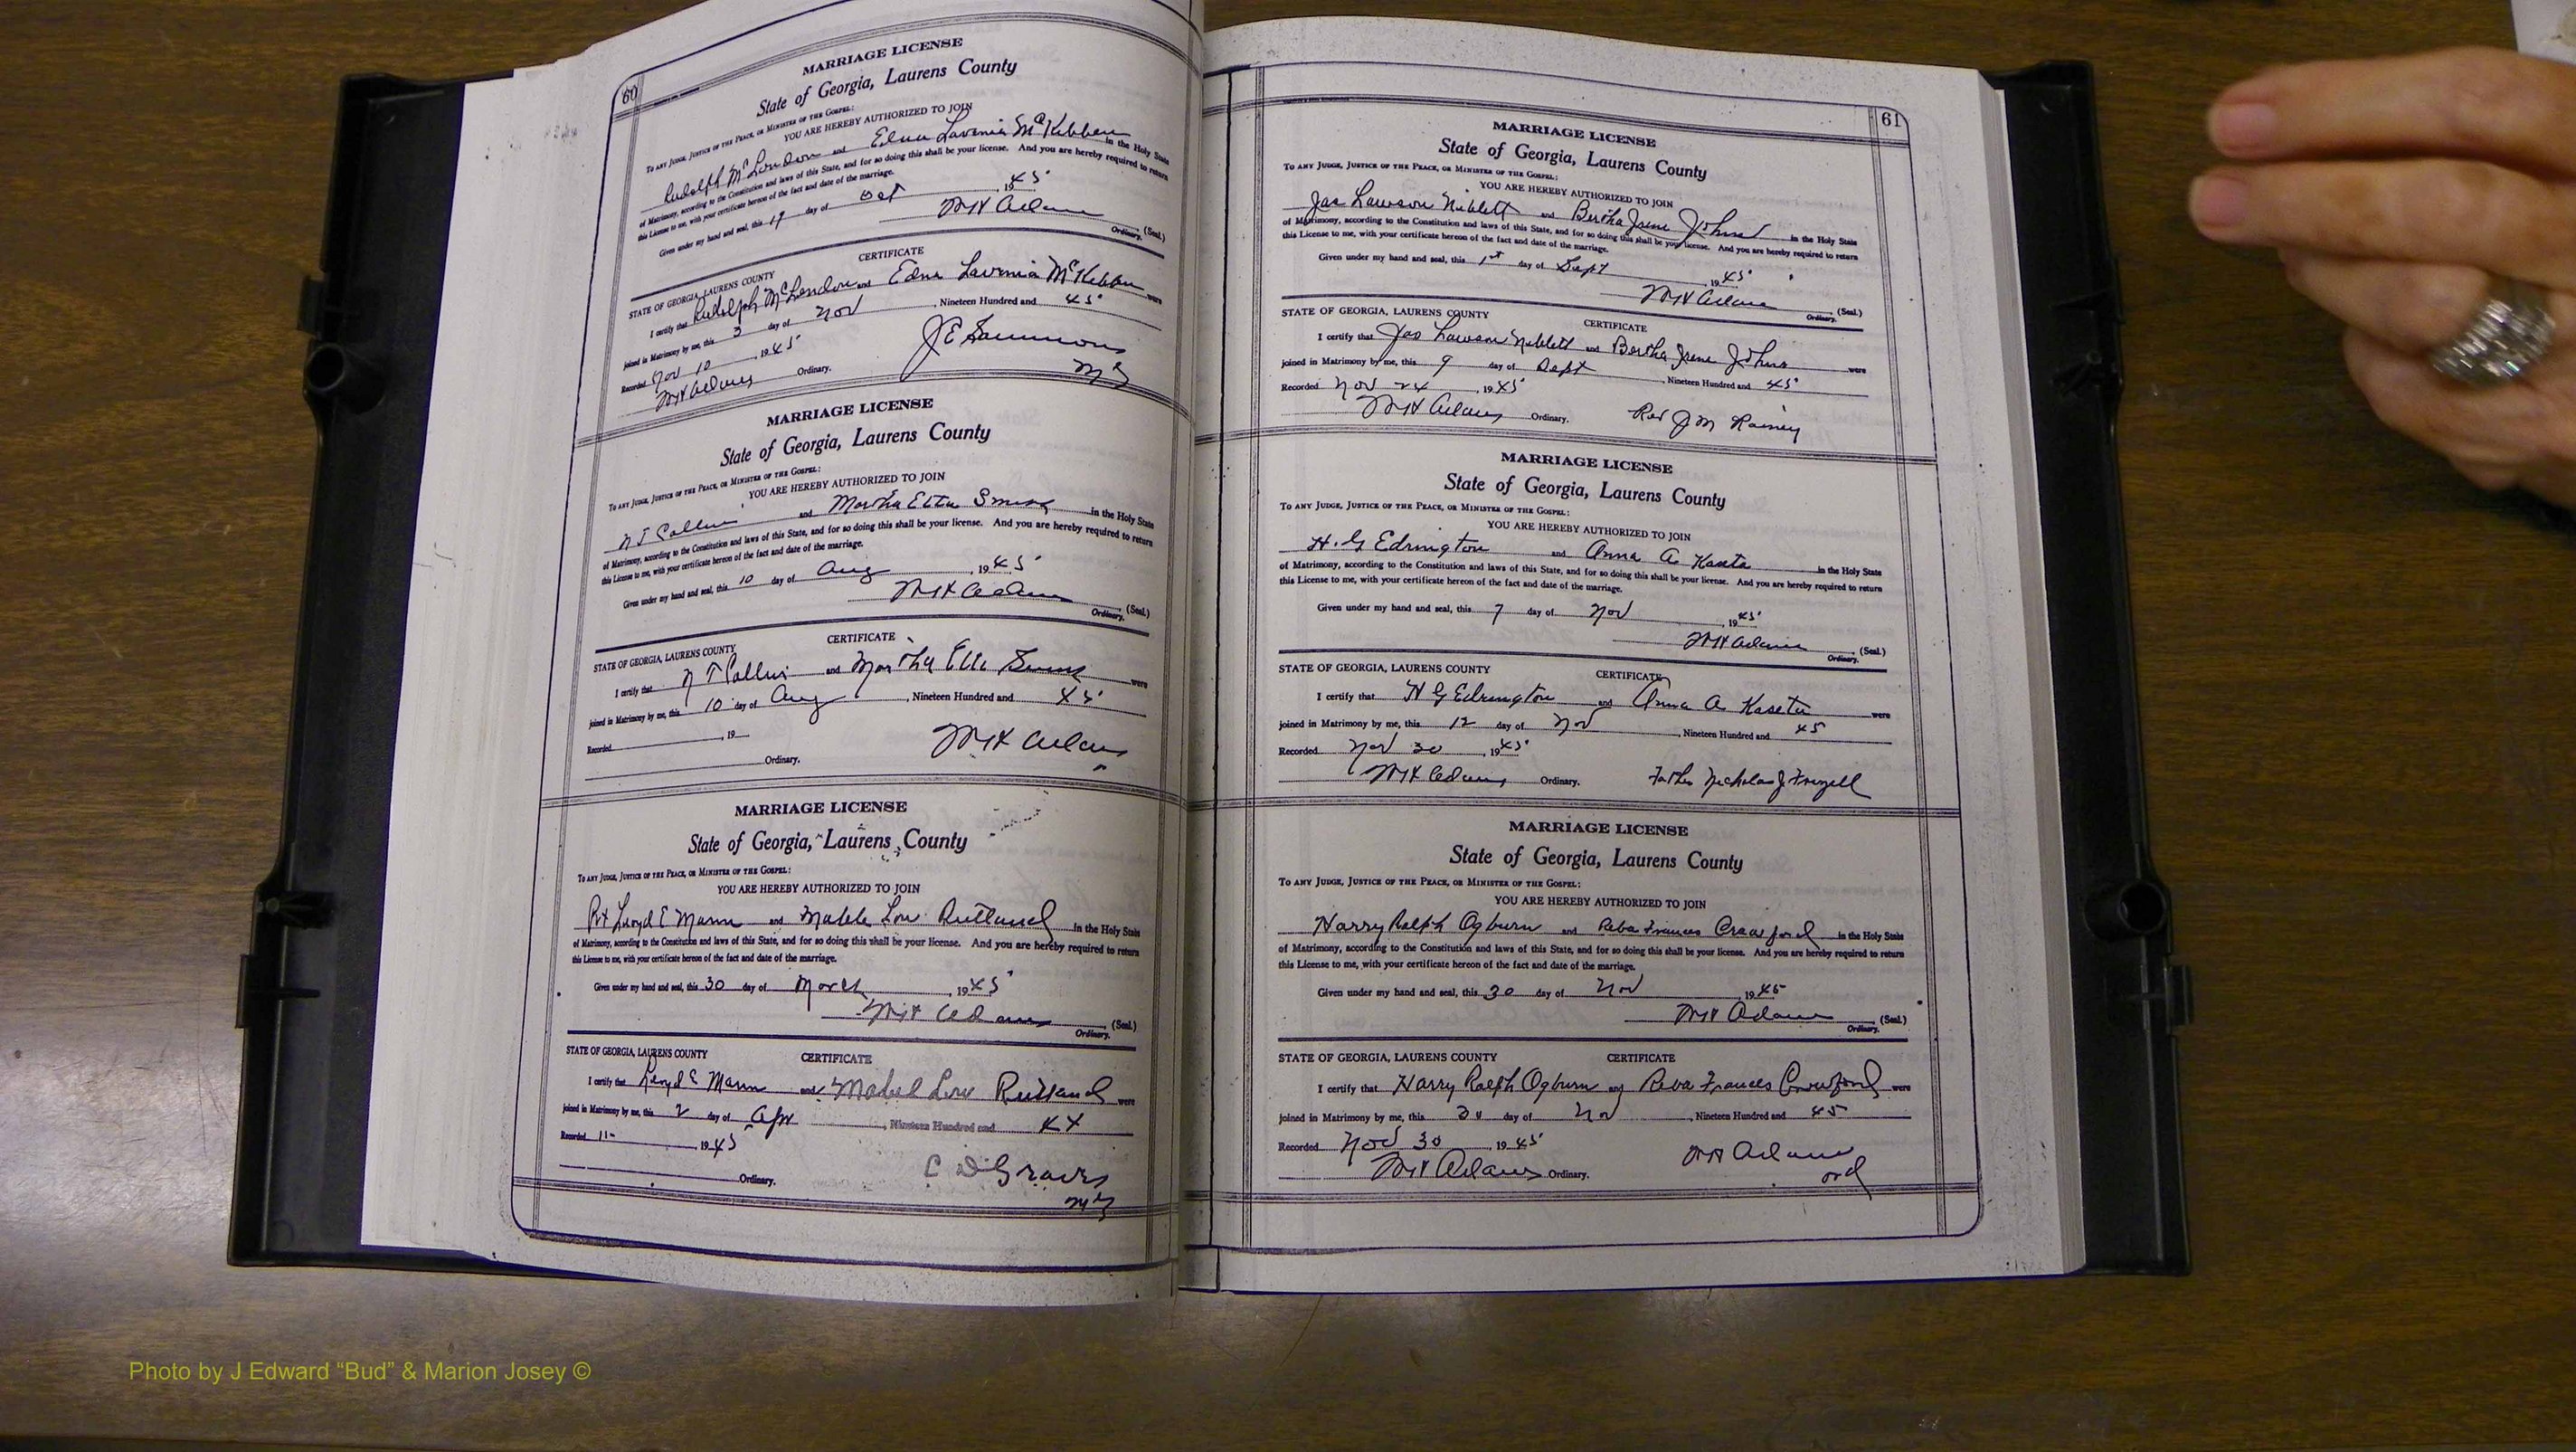 60
MARRIAGE LICENSE
State of Georgia, Laurens County
TO ANY JUDGE, JUSTICE OF THE PEACE, OR MINISTER OF THE GOSPEL:
YOU ARE HEREBY AUTHORIZED TO JOIN
Rudolph McLendon and Edna Lavenia McKibben in the Holy State
of Matrimony, according to the Constitution and laws of this State, and for so doing this shall be your license. And you are hereby required to return
this License to me, with your certificate hereon of the fact and date of the marriage.
Given under my hand and seal, this 19 day of Oct, 1945
MH Adams (Seal.)
Ordinary.
CERTIFICATE
STATE OF GEORGIA, LAURENS COUNTY
I certify that Rudolph McLendon and Edna Lavenia McKibben were
joined in Matrimony by me, this 3 day of Nov, Nineteen Hundred and 45
Recorded Nov 10, 1945
MH Adams Ordinary.
J E Sammons
MG
MARRIAGE LICENSE
State of Georgia, Laurens County
TO ANY JUDGE, JUSTICE OF THE PEACE, OR MINISTER OF THE GOSPEL:
YOU ARE HEREBY AUTHORIZED TO JOIN
N T Collins and Martha in the Holy State
of Matrimony, according to the Constitution and laws of this State, and for so doing this shall be your license. And you are hereby required to return
this License to me, with your certificate hereon of the fact and date of the marriage.
Given under my hand and seal, this 10 day of Aug, 1945
MH Adams (Seal.)
Ordinary.
CERTIFICATE
STATE OF GEORGIA, LAURENS COUNTY
I certify that N T Collins and Martha were
joined in Matrimony by me, this 10 day of Aug, Nineteen Hundred and 45
Recorded , 19
MH Adams
Ordinary.
MARRIAGE LICENSE
State of Georgia, Laurens County
TO ANY JUDGE, JUSTICE OF THE PEACE, OR MINISTER OF THE GOSPEL:
YOU ARE HEREBY AUTHORIZED TO JOIN
Pvt Lloyd E Mann and Mable Lou Rutland in the Holy State
of Matrimony, according to the Constitution and laws of this State, and for so doing this shall be your license. And you are hereby required to return
this License to me, with your certificate hereon of the fact and date of the marriage.
Given under my hand and seal, this 30 day of March, 1945
MH Adams (Seal.)
Ordinary.
STATE OF GEORGIA, LAURENS COUNTY CERTIFICATE
I certify that Lloyd E Mann and Mabel Lou Rutland were
joined in Matrimony by me, this 2 day of Apr, Nineteen Hundred and 44
Recorded 11- 1945
C D Graves
Ordinary.
MG
61
MARRIAGE LICENSE
State of Georgia, Laurens County
TO ANY JUDGE, JUSTICE OF THE PEACE, OR MINISTER OF THE GOSPEL:
YOU ARE HEREBY AUTHORIZED TO JOIN
Jas Lawson Niblett and Bertha Irene Johns in the Holy State
of Matrimony, according to the Constitution and laws of this State, and for so doing this shall be your license. And you are hereby required to return
this License to me, with your certificate hereon of the fact and date of the marriage.
Given under my hand and seal, this 1st day of Sept, 1945
MH Adams (Seal.)
Ordinary.
STATE OF GEORGIA, LAURENS COUNTY CERTIFICATE
I certify that Jas Lawson Niblett and Bertha Irene Johns were
joined in Matrimony by me, this 9 day of Sept, Nineteen Hundred and 45
Recorded Nov 24, 1945
MH Adams Ordinary. Rev J M Rainey
MARRIAGE LICENSE
State of Georgia, Laurens County
TO ANY JUDGE, JUSTICE OF THE PEACE, OR MINISTER OF THE GOSPEL:
YOU ARE HEREBY AUTHORIZED TO JOIN
H. G Edrington and Anna A Kaseta in the Holy State
of Matrimony, according to the Constitution and laws of this State, and for so doing this shall be your license. And you are hereby required to return
this License to me, with your certificate hereon of the fact and date of the marriage.
Given under my hand and seal, this 7 day of Nov, 1945
MH Adams (Seal.)
Ordinary.
STATE OF GEORGIA, LAURENS COUNTY CERTIFICATE
I certify that H G Edrington and Anna A Kaseta were
joined in Matrimony by me, this 12 day of Nov, Nineteen Hundred and 45
Recorded Nov 30, 1945
MH Adams Ordinary. Father Nicholas J
MARRIAGE LICENSE
State of Georgia, Laurens County
TO ANY JUDGE, JUSTICE OF THE PEACE, OR MINISTER OF THE GOSPEL:
YOU ARE HEREBY AUTHORIZED TO JOIN
Harry Ralph Ogburn and Reba Frances Crawford in the Holy State
of Matrimony, according to the Constitution and laws of this State, and for so doing this shall be your license. And you are hereby required to return
this License to me, with your certificate hereon of the fact and date of the marriage.
Given under my hand and seal, this 30 day of Nov, 1945
MH Adams (Seal.)
Ordinary.
STATE OF GEORGIA, LAURENS COUNTY CERTIFICATE
I certify that Harry Ralph Ogburn and Reba Frances Crawford were
joined in Matrimony by me, this 30 day of Nov, Nineteen Hundred and 45
Recorded Nov 30, 1945
MH Adams Ordinary. MH Adams
ord
Photo by J Edward “Bud” & Marion Josey ©